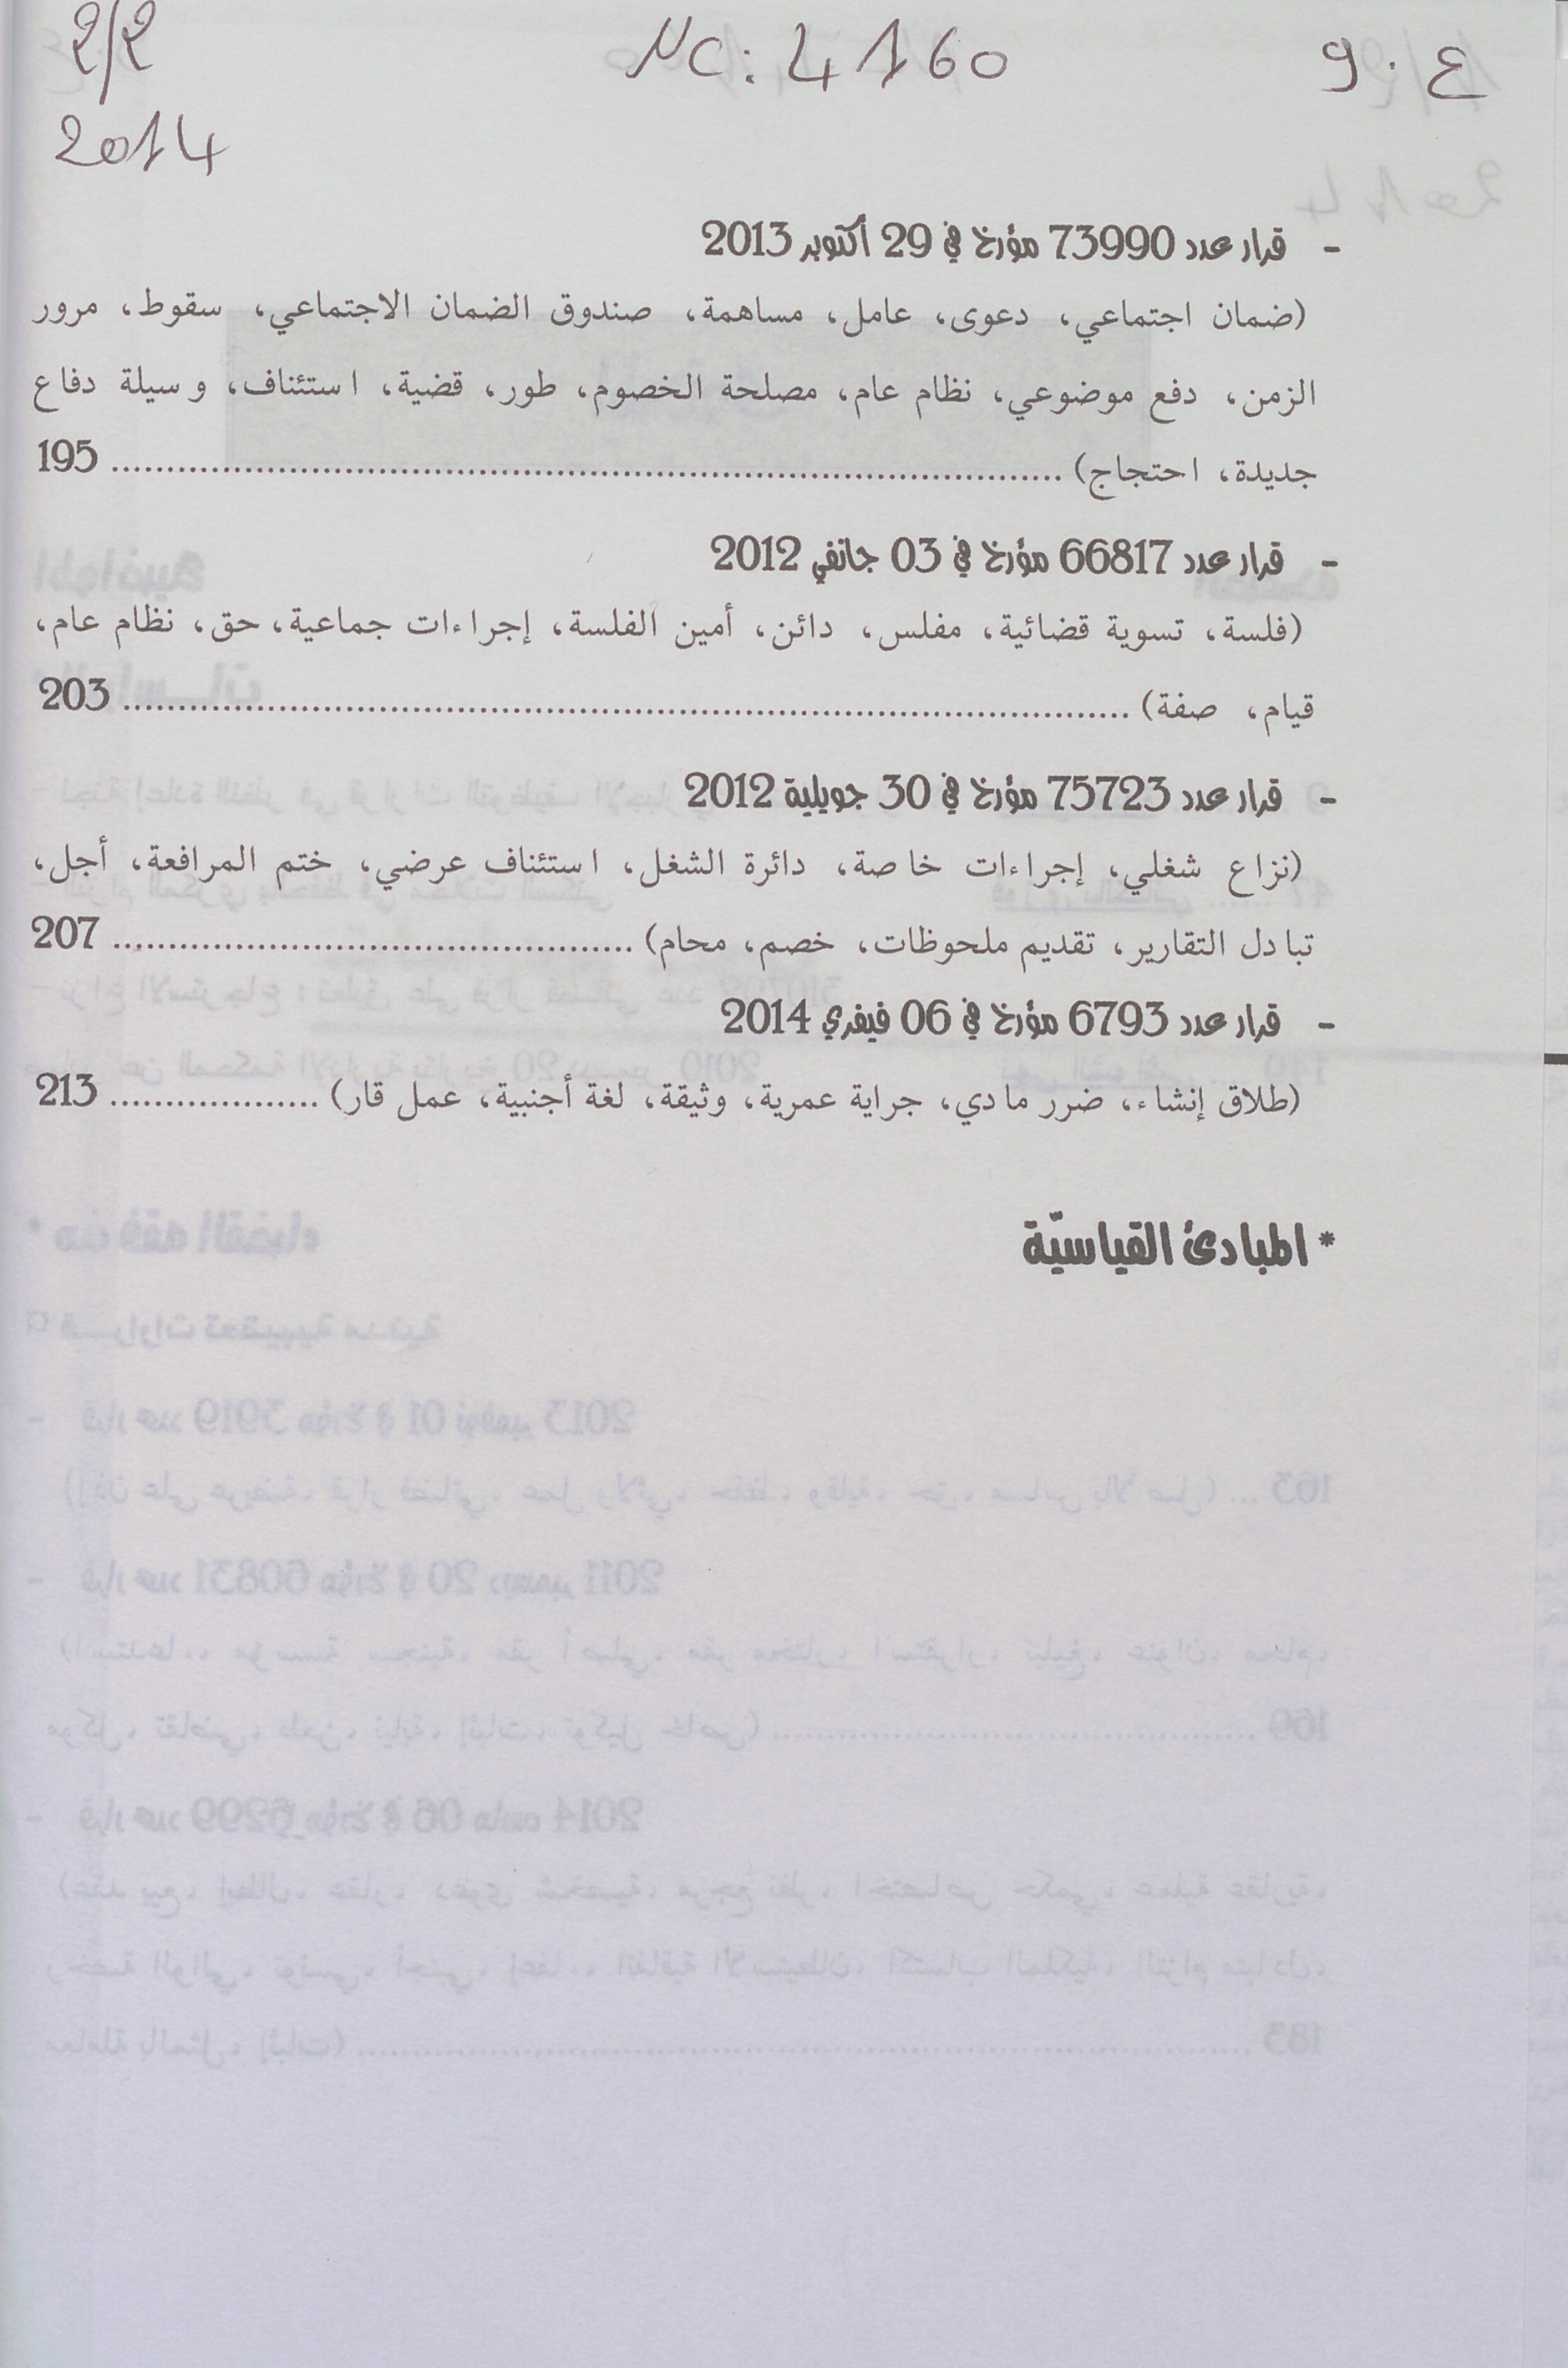 ع . و NC: 4160 2/2
2014
- قرار عدد 73990 مؤرخ في 29 أكتوبر 2013
(ضمان اجتماعي، دعوى، عامل، مساهمة، صندوق الضمان الاجتماعي، سقوط، مرور
الزمن، دفع موضوعي، نظام عام، مصلحة الخصوم، طور، قضية، استئناف، وسيلة دفاع
جديدة، احتجاج) ........................................................ 195
- قرار عدد 66817 مؤرخ في 03 جانفي 2012
(فلسة، تسوية قضائية، مفلس، دائن، أمين الفلسة، إجراءات جماعية، حق، نظام عام،
قيام، صفة) ........................................................ 203
- قرار عدد 75723 مؤرخ في 30 جويلية 2012
(نزاع شغلي، إجراءات خاصة، دائرة الشغل، استئناف عرضي، ختم المرافعة، أجل،
تبادل التقارير، تقديم ملحوظات، خصم، محام) ................................ 207
- قرار عدد 6793 مؤرخ في 06 فيفري 2014
(طلاق إنشاء، ضرر مادي، جراية عمرية، وثيقة، لغة أجنبية، عمل قار) ................... 213
* المبادئ القياسيّة